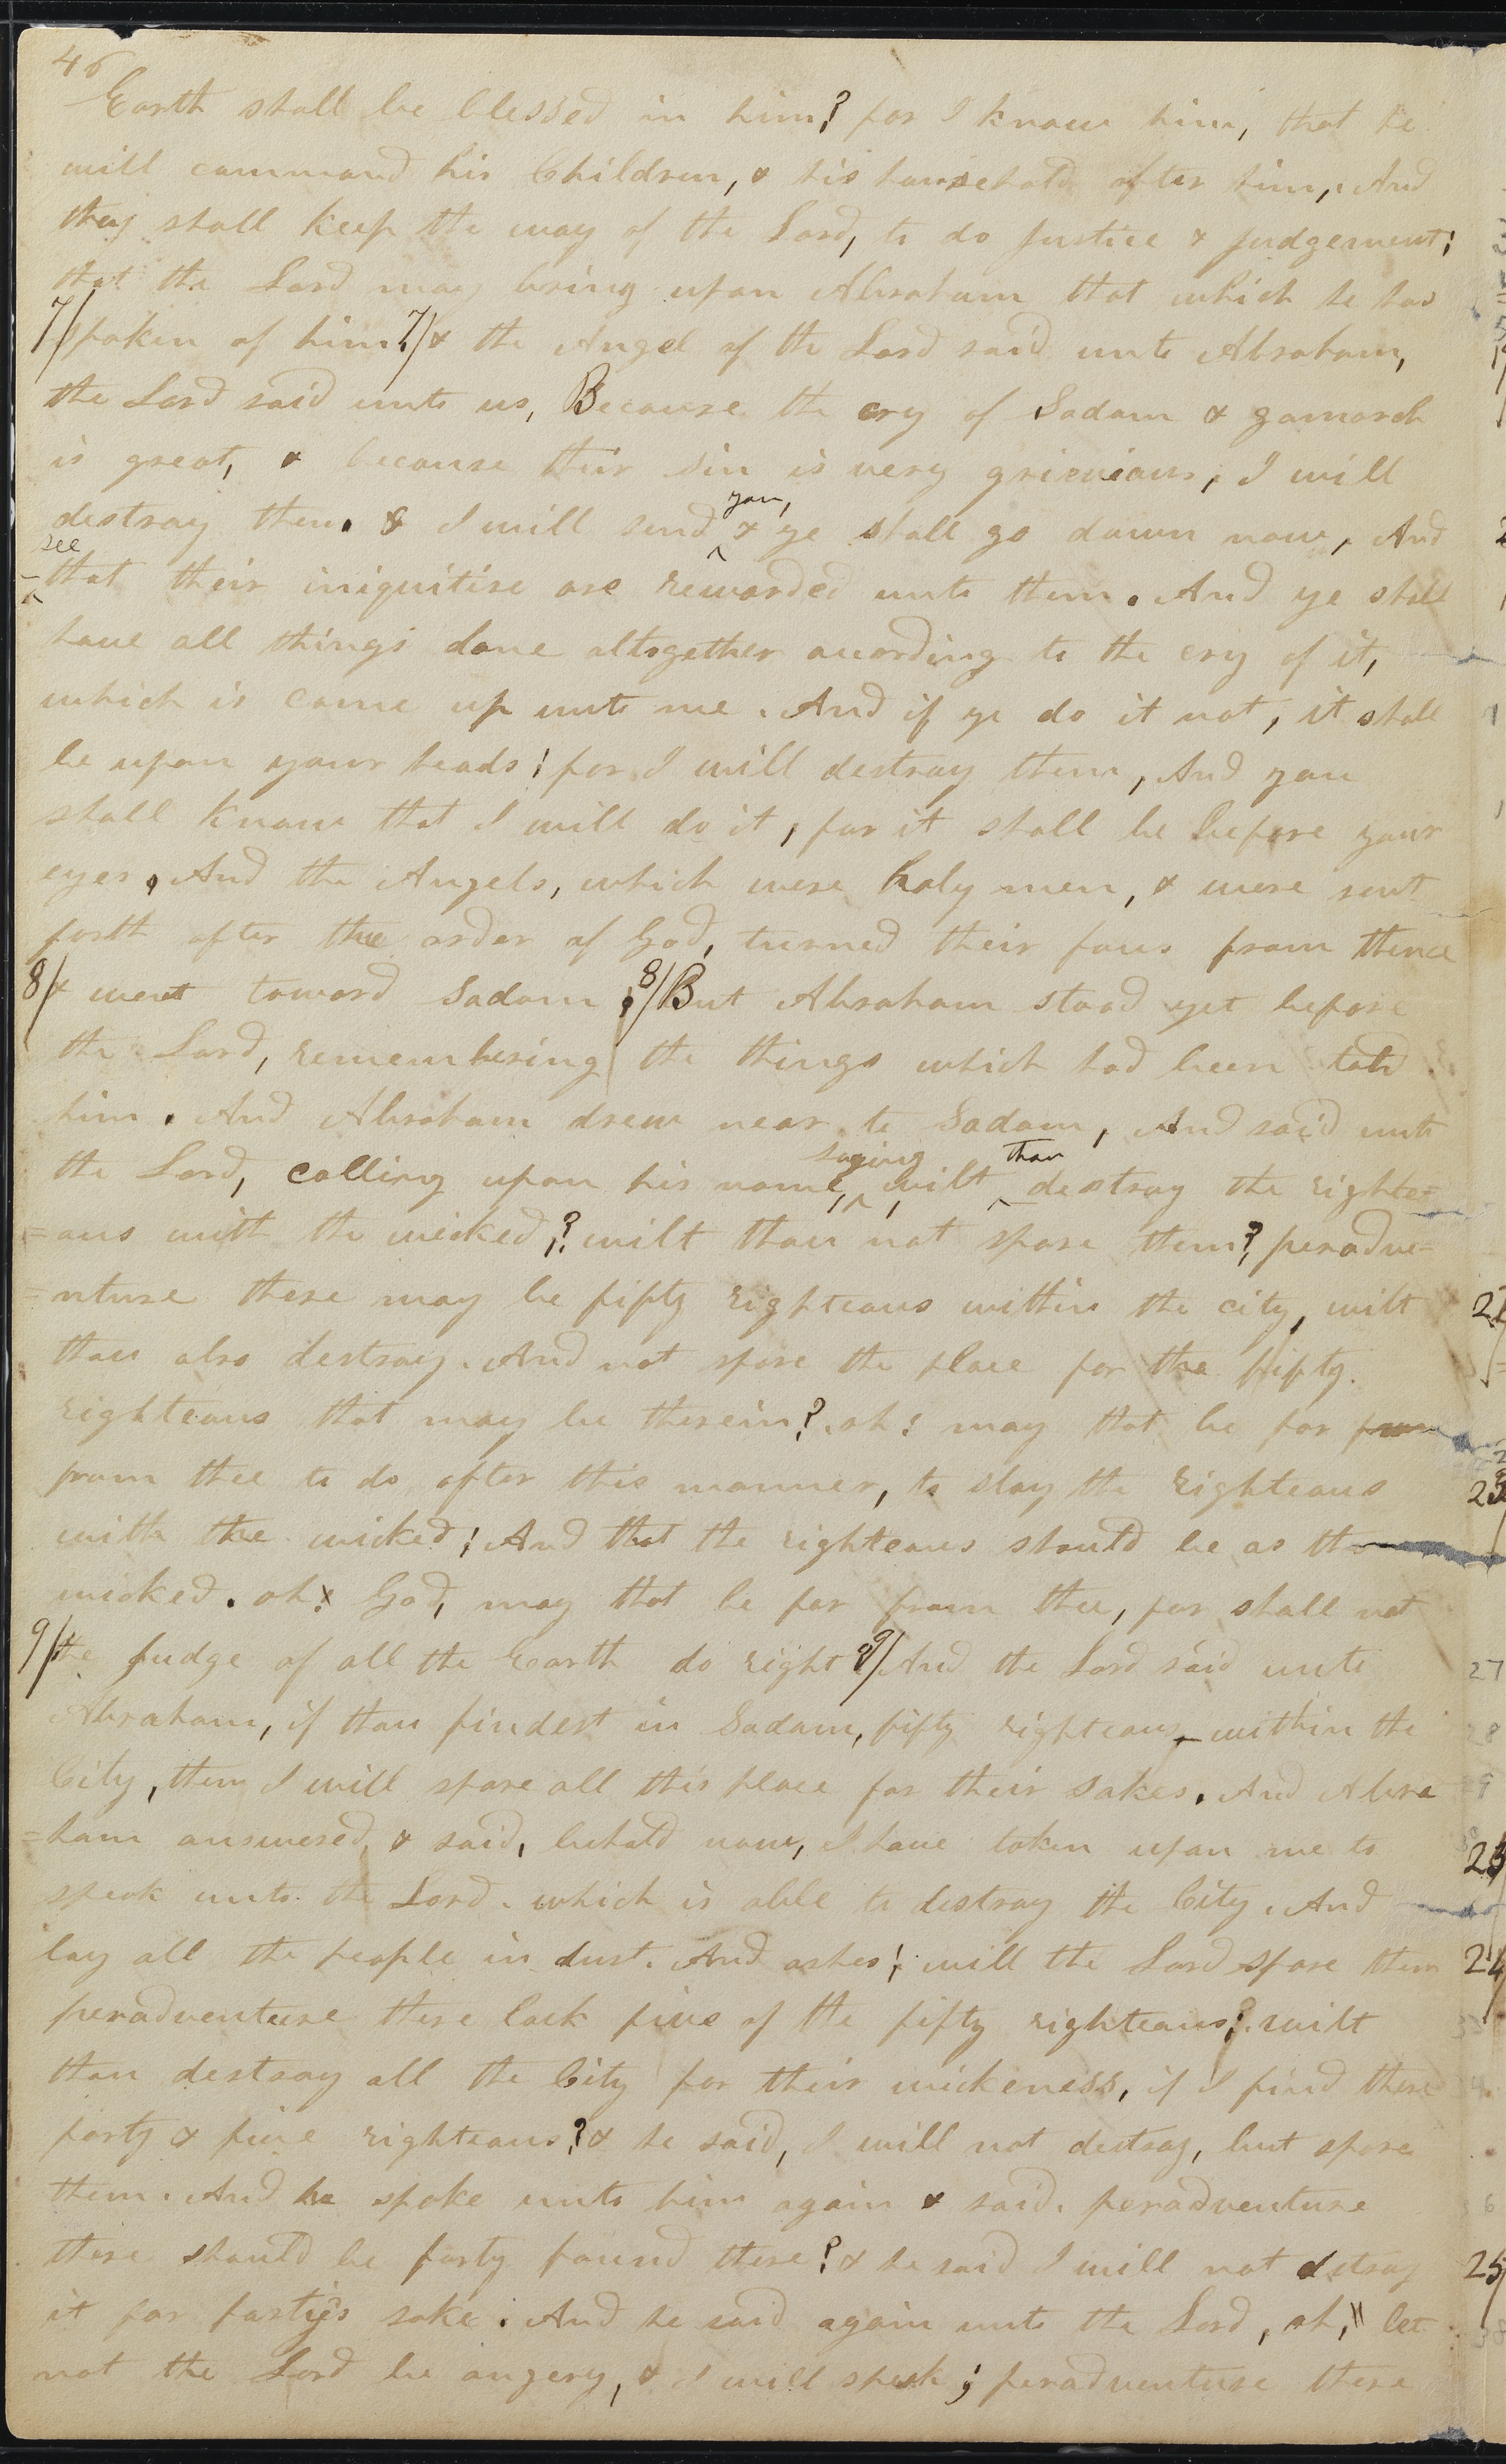 46
Earth shall be blessed in him? for I know him, that he
will command his Children, & his household after him, And
they shall keep the way of the Lord, to do justice & judgement;
that the Lord may bring upon Abraham that which he has
7/ spoken of him? 7/ & the Angel of the Lord said unto Abraham,
the Lord said unto us, Because the cry of Sodom & gomorah
is great, & because their sin is very grievious, I will
destroy them. & I will send ^you, & ye shall go down now, And
^see that their iniquitise are rewarded unto them. And ye shall
have all things done altogether acording to the cry of it,
which is come up unto me. And if ye do it not, it shall
be upon your heads; for I will destroy them, And you
shall know that I will do it, for it shall be before your
eyes. And the Angels, which were holy men, & were sent
forth after the order of God, turned their faces from thence
8/ & went toward Sodom; 8/ But Abraham stood yet before
the Lord, remembering the things which had been told
him. And Abraham drew near to Sodom, And said unto
the Lord, calling upon his name, ^saying, wilt ^thou destroy the righte=
=ous with the wicked,? wilt thou not spare them? peradve=
=nture there may be fifty righteous within the city, wilt
thou also destroy. And not spare the place for the fifty
righteous that may be therein? oh! may that be far from
from thee to do after this manner, to slay the righteous
with the wicked; And that the righteous should be as the
wicked. oh! God, may that be far from thee, for shall not
9/ the judge of all the Earth do right? 9/ And the Lord said unto
Abraham, if thou findest in Sodom, fifty righteous within the
City, then I will spare all this place for their sakes. And Abra
=ham answered, & said, behold now, I have taken upon me to
speak unto the Lord. which is able to destroy the City. And
lay all the people in dust. And ashes; will the Lord spare them
peradventure there lack five of the fifty righteous; wilt
thou destroy all the City for their wickeness, if I find there
forty & five righteous? & he said, I will not destroy, but spare
them. And he spoke unto him again & said. peradventure
there should be forty found there? & he said I will not destroy
it for forties sake. And he said again unto the Lord, oh, let
not the Lord be angery, & I will speak; peradventure there